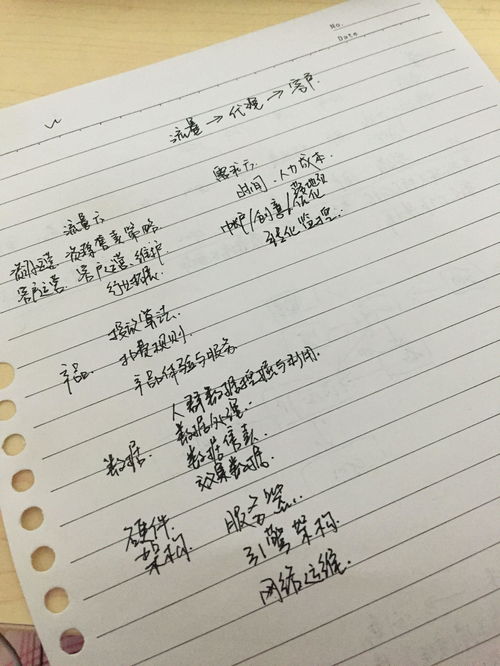 No.
Date
流量 → 代理 → 客户.
需求方.
时间、人力成本
中小户/创意/落地页
优化
量化监控.
流量方
资源运营 资源售卖策略
客户运营. 客户运营、维护
行业拓展
产品.
投放算法.
扣费规则
产品体验与服务
数据.
人群数据挖掘与利用.
数据处理
数据信息
效果数据.
硬件.
架构.
服务器.
引擎架构.
网络运维.